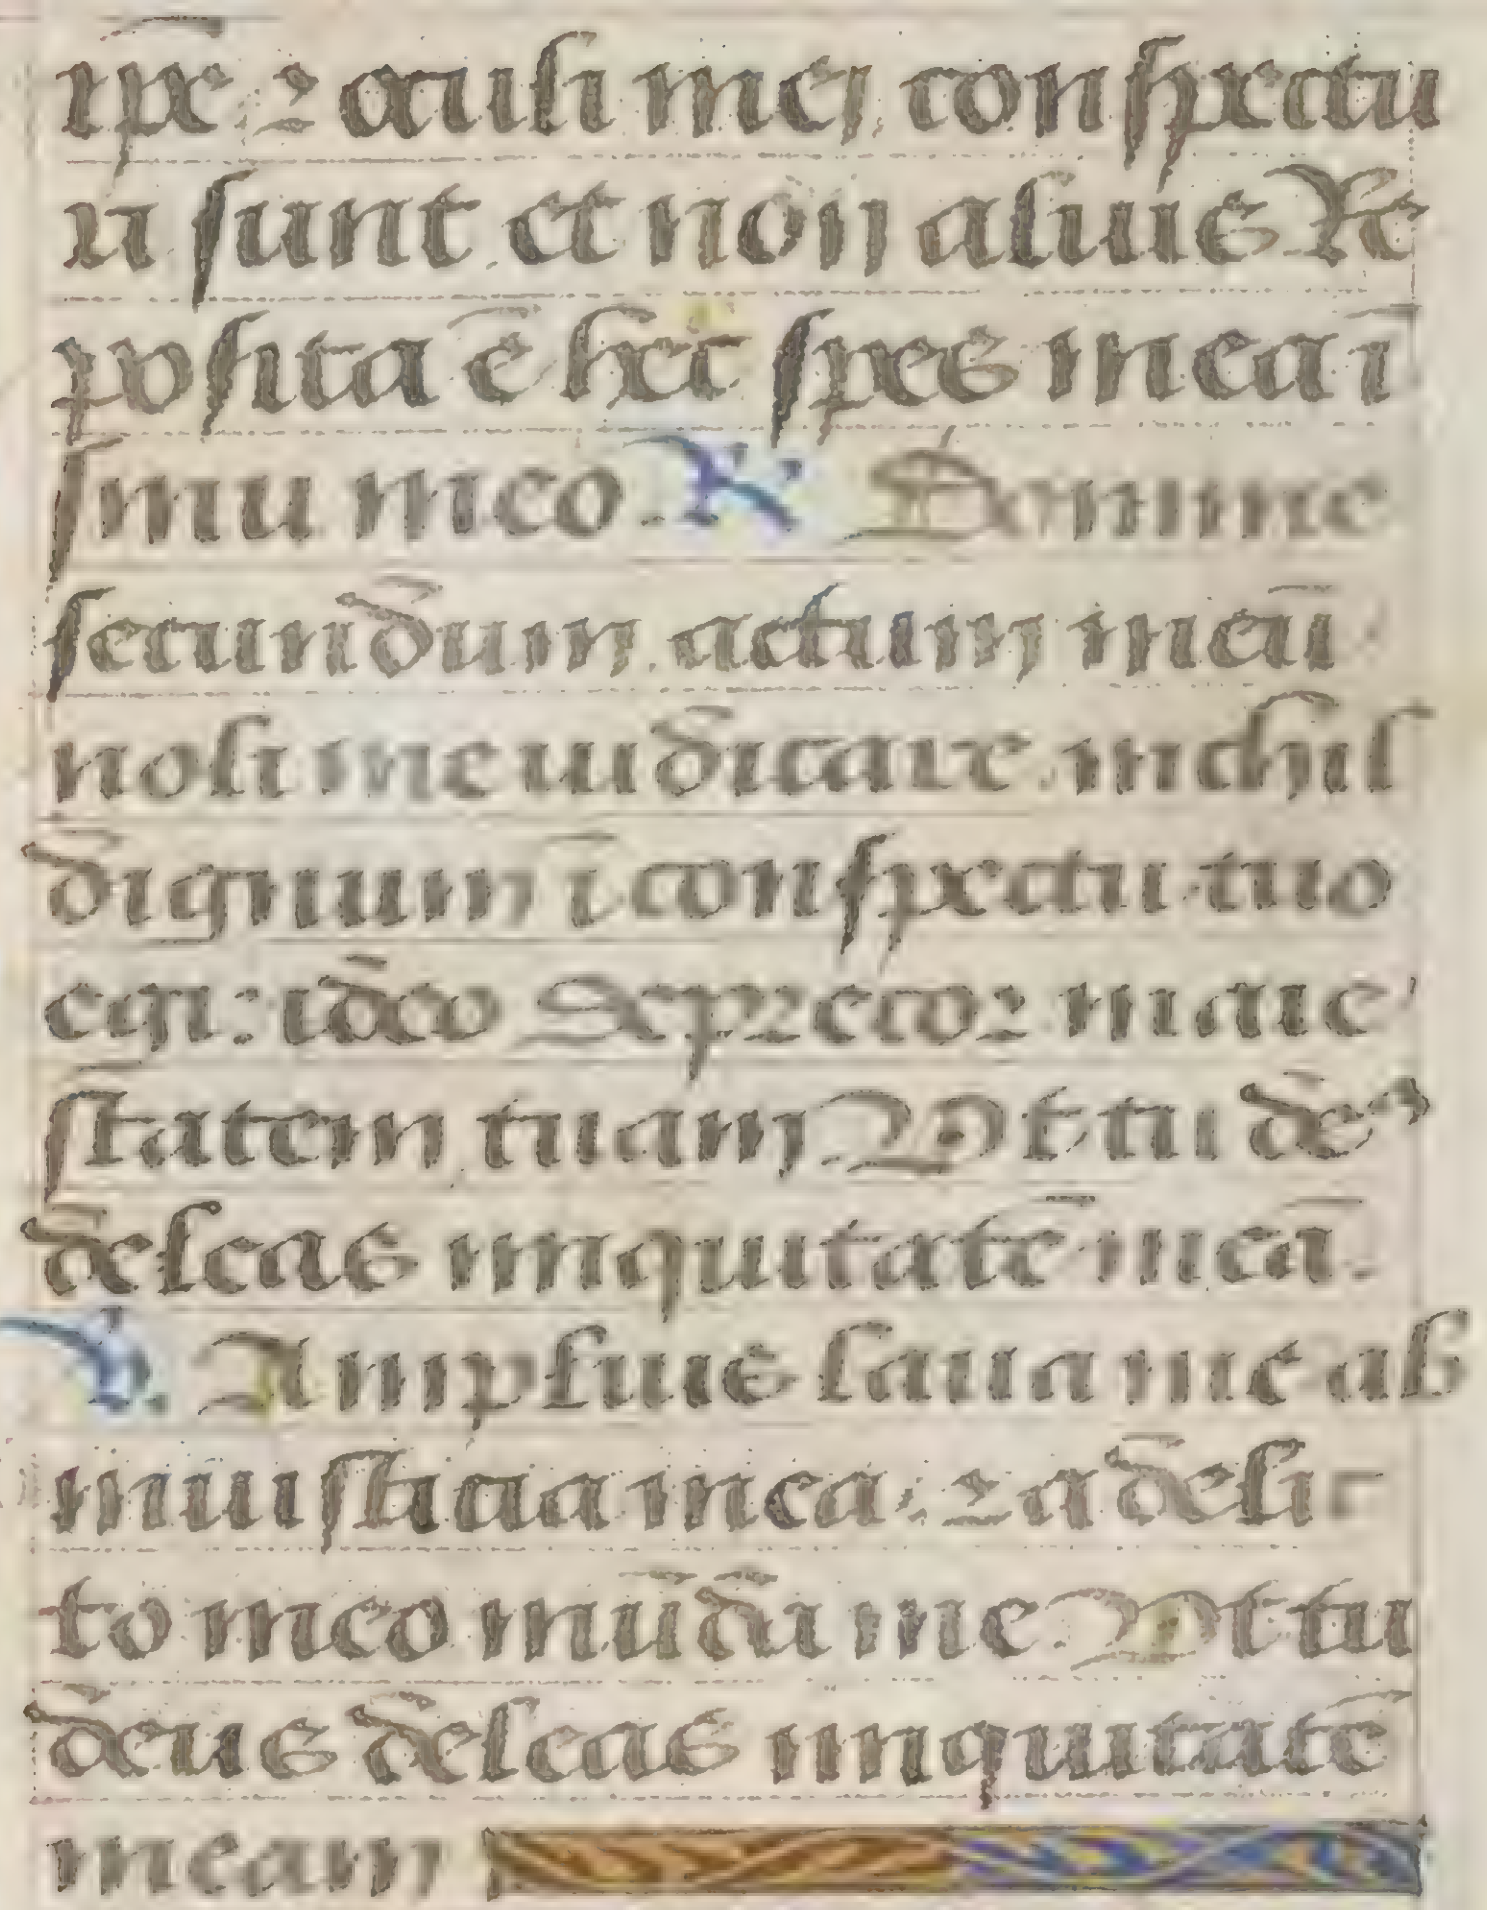 ip̄e ⁊ oculi mei conspectu
ri sunt et non alius Re
posita ē hec spes mea ī
sinu meo. R̷ Domine
secundum actum meū
noli me iudicare nichil
dignum ī conspectu tuo
egi: ideo deprecor maie
statem tuam Vt tu deꝰ
deleas iniquitatē meā.
V. Amplius laua me ab
iniusticia mea: ⁊ a deli-
to meo mūda me Vt tu
deus deleas iniquitatē
meam